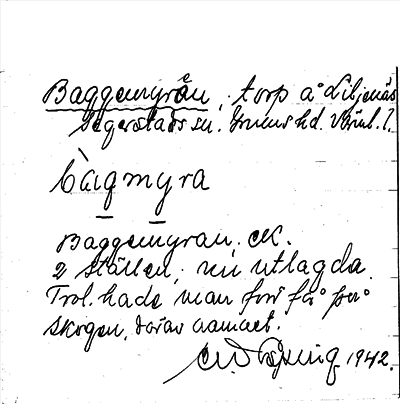 Baggemyrån, torp å Liljenäs
Segerstads sn. Grums hd. Värml. l.
bàgmyra
Baggemyran. ek.
2 ställen, nu utlagda.
Trol. hade man förr få på
skogen, därav namnet.
1942.